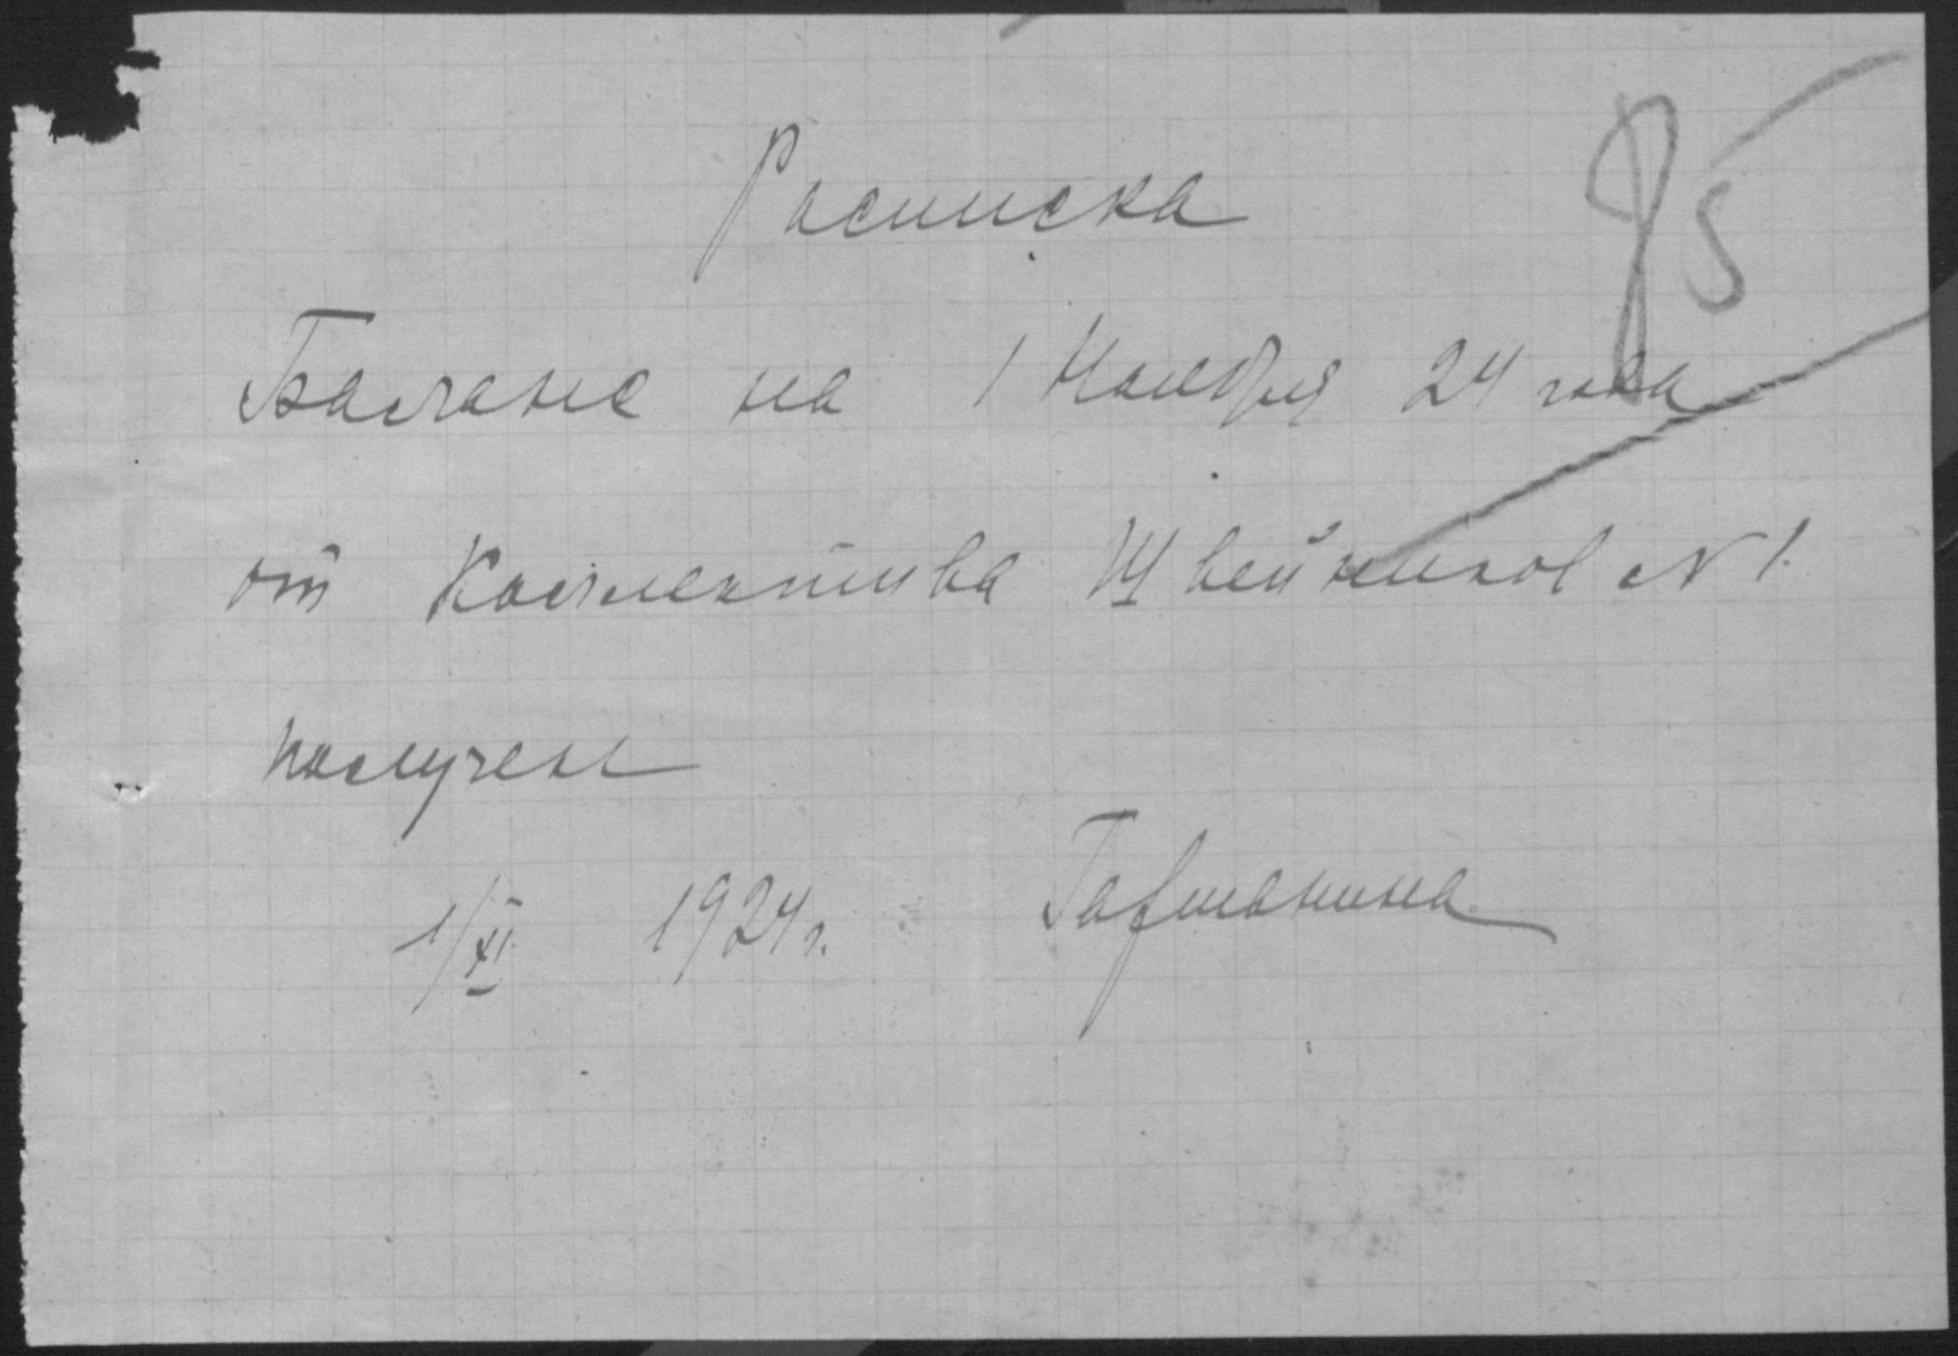 85
Расписка
Баланс на 1 Ноября 24 года
от Коллектива Швейников № 1.
получен
1/XI 1924 г. Гарманина